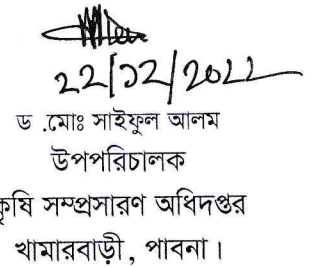 22/12/2022
ড .মোঃ সাইফুল আলম
উপপরিচালক
কৃষি সম্প্রসারণ অধিদপ্তর
খামারবাড়ী, পাবনা।